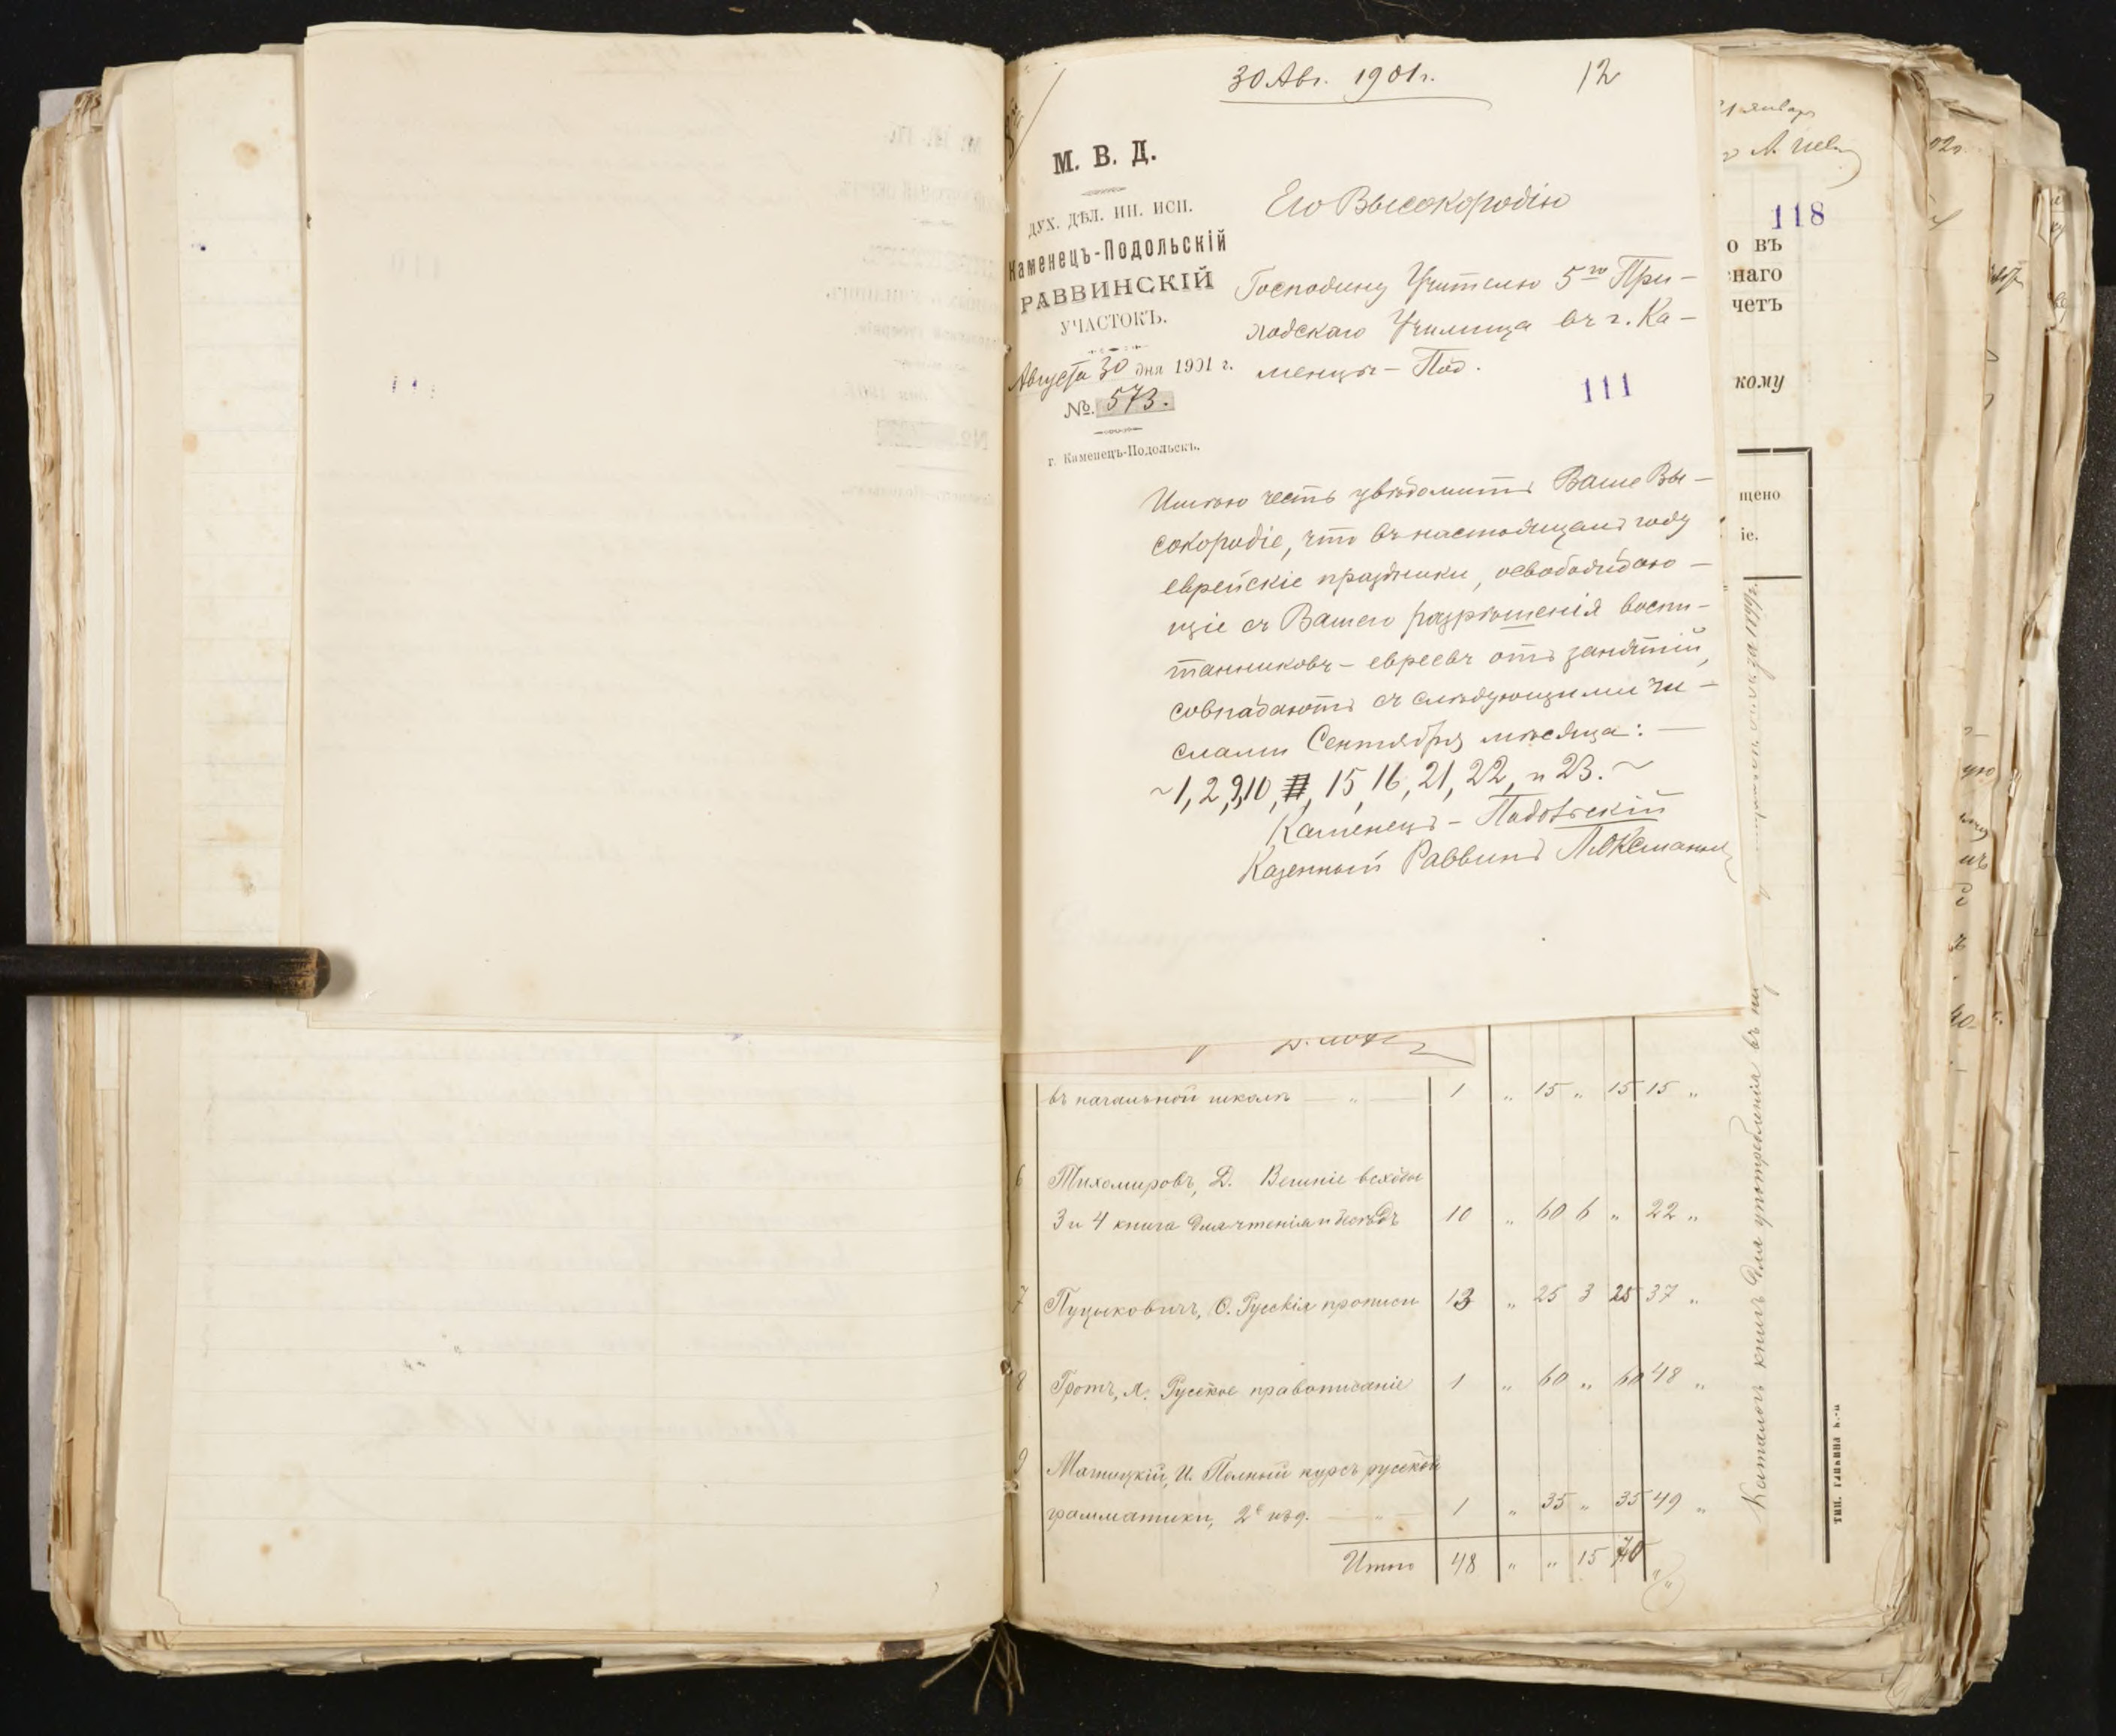 30 Авг. 1901 г.
12
М. В. Д.
ДУХ. ДѢЛ. ИН. ИСП.
Каменецъ-Подольскій
РАВВИНСКІЙ
УЧАСТОКЪ.
Августа 30 дня 1901 г.
№. 573.
г. Каменецъ-Подольскъ.
Его Высокородію
Господину Учителю 5го При-
ходскаго Училища въ г. Ка-
менцѣ-Под.
111
Имѣю честь увѣдомить Ваше Вы-
сокородіе, что въ настоящемъ году
еврейскіе праздники, освобождаю-
щіе съ Вашего разрѣшенія воспи-
танниковъ-евреевъ отъ занятій,
совпадаютъ съ слѣдующими чи-
слами Сентября мѣсяца: —
~ 1, 2, 9, 10, 15, 16, 21, 22, и 23. ~
Каменецъ-Подольскій
Казенный Раввинъ
118
о въ
наго
четъ
кому
щено
іе.
въ начальной школѣ — „ — 1 „ 15 „ 15 15 „
6 Тихомировъ, Д. Вешніе всходы
3 и 4 книга для чтенія и бесѣдъ 10 „ 60 6 „ 22 „
7 Пуцыковичъ, Ѳ. Русскія прописи 13 „ 25 3 25 37 „
8 Гротъ, Я. Русское правописаніе 1 „ 60 „ 60 48 „
9 И. Полный курсъ русской
грамматики, 2е изд. — „ — 1 „ 35 „ 35 49 „
Итого 48 „ „ 15 70 „
Каталогъ книгъ для употребленія въ